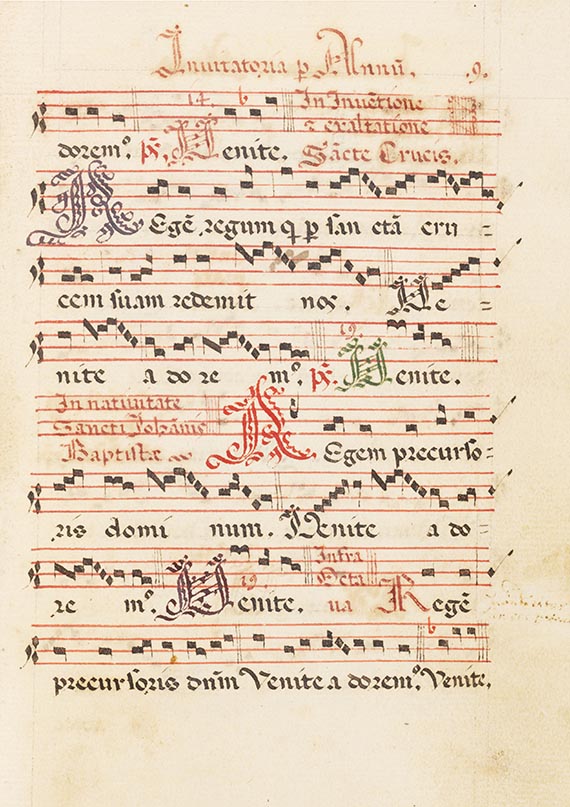 Inuitatoria p̄ Annū. .9.
14. b In Inuētione
⁊ exaltatione
doremꝰ. ps̄. Venite. Sācte Crucis.
REgē regum q p̄ san ctā cru=
cem suam redemit nos. Ve=
nite a do re mꝰ. ps̄. Venite.
19.
In natiuitate
Sancti Iohānis
Baptistæ
REgem precurso=
ris domi num. Venite a do=
Infra
19 Octa
re mꝰ. Venite. ua Regē
b
precursoris dn̄m Venite a doremꝰ. Venite.